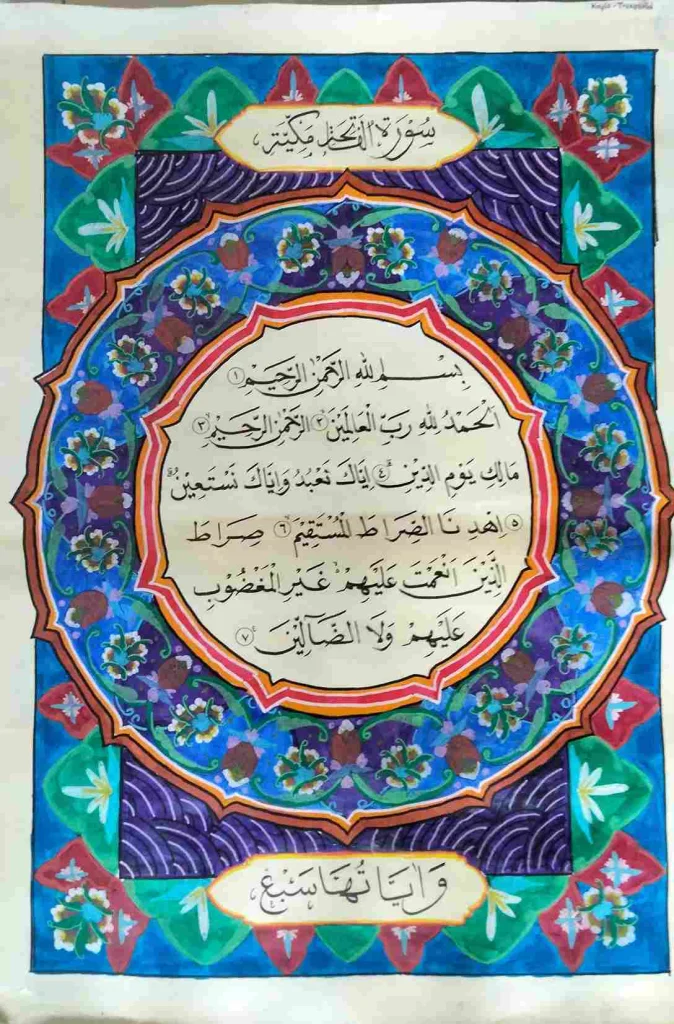 سُوْرَةُ الْفَاتِحَةِ مَكِّيَّةٌ
بِسْمِ للهِ الرَّحْمٰنِ الرَّحِيْمِ ١
اَلْحَمْدُ لِلّٰهِ رَبِّ الْعَالَمِيْنَ ٢ الرَّحْمٰنِ الرَّحِيْمِ ٣
مَالِكِ يَوْمِ الدِّيْنِ ٤ اِيَّاكَ نَعْبُدُ وَاِيَّاكَ نَسْتَعِيْنُ
٥ اِهْدِنَا الصِّرَاطَ الْمُسْتَقِيْمَ ٦ صِرَاطَ
الَّذِيْنَ اَنْعَمْتَ عَلَيْهِمْ غَيْرِ الْمَغْضُوْبِ
عَلَيْهِمْ وَلَا الضَّآلِّيْنَ ٧
وَاٰيَاتُهَا سَبْعٌ